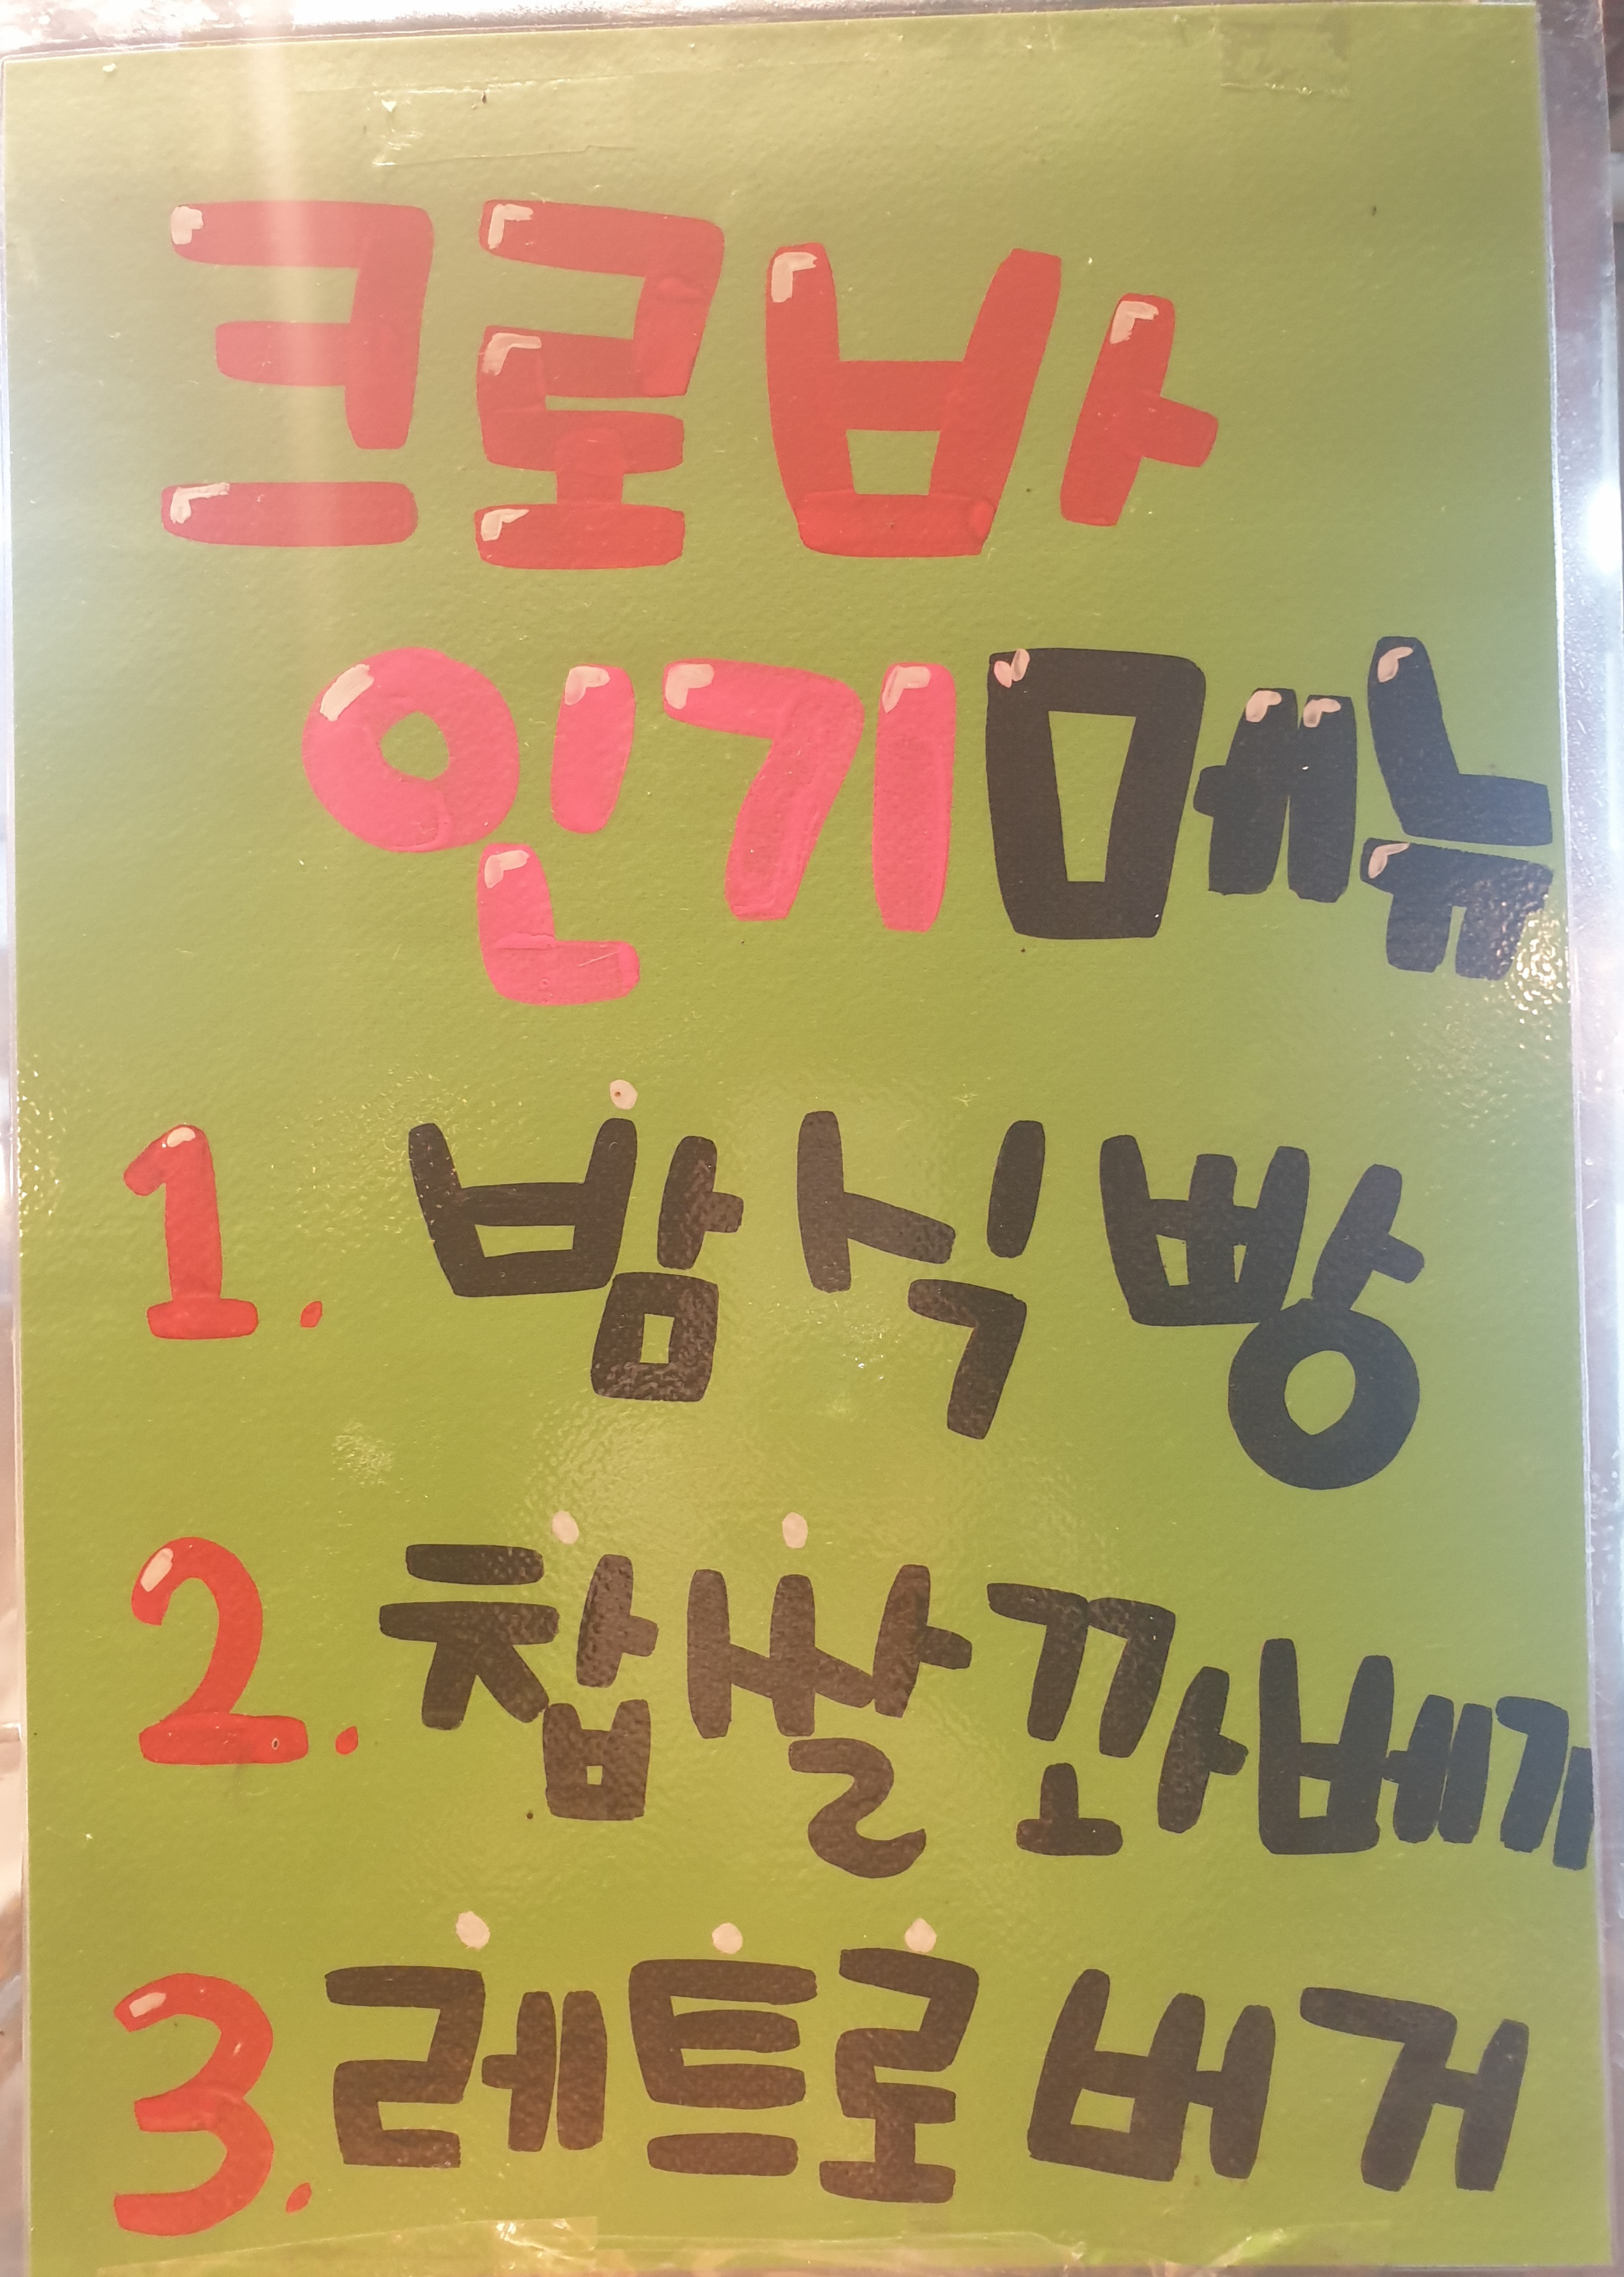 크로바
인기메뉴
1. 밤식빵
2. 찹쌀꽈베기
3. 레트로버거